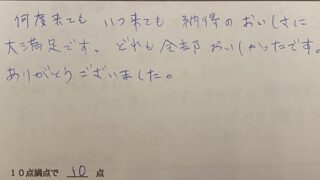 何度来ても いつ来ても 納得のおいしさに
大満足です。どれも全部おいしかったです。
ありがとうございました。
10点満点で 10 点